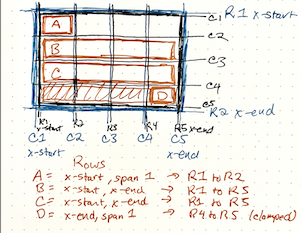 C1 R1 x-start
A
C2
B
C3
C
C4
D
C5
R2 x-end
R1 R2 R3 R4 R5 x-end
x-start
C1 C2 C3 C4 C5
x-start x-end
Rows
A = x-start, span 1 → R1 to R2
B = x-start, x-end → R1 to R5
C = x-start, x-end → R1 to R5
D = x-end, span 1 → R4 to R5 (clamped)